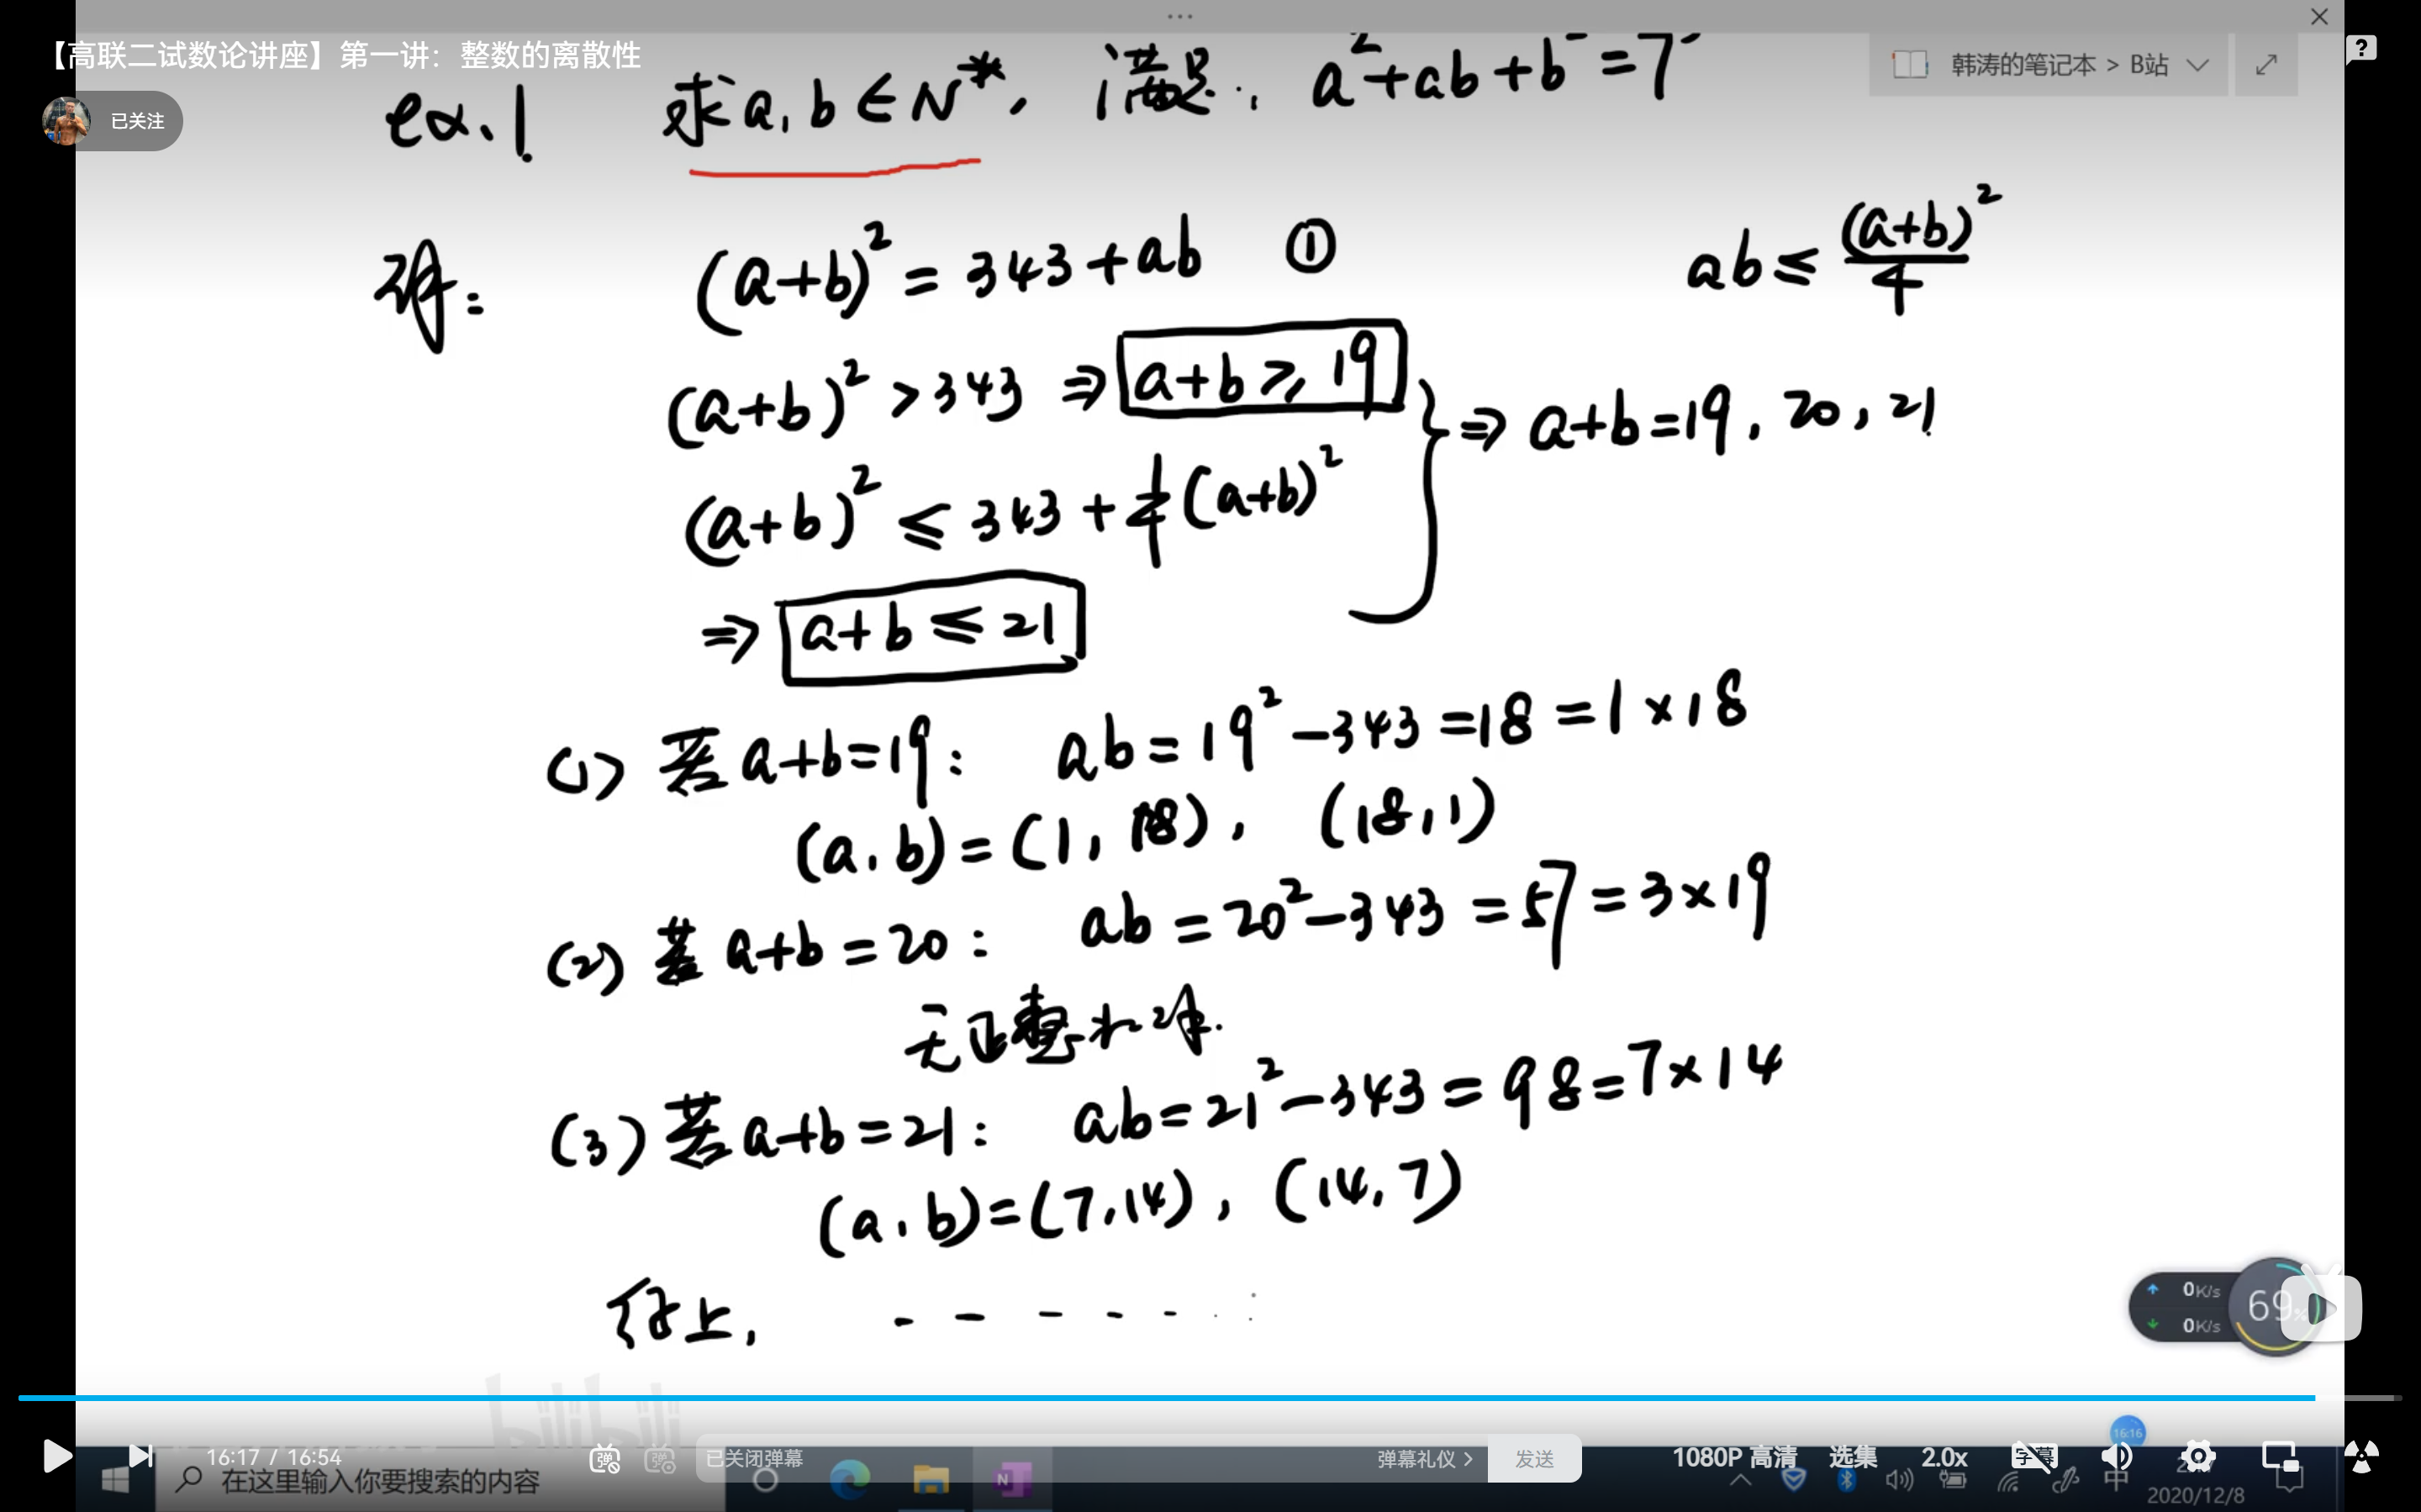 【高联二试数论讲座】第一讲：整数的离散性
已关注
韩涛的笔记本 > B站
ex.1 求a,b∈N*, 满足: a²+ab+b²=7³
解: (a+b)²=343+ab ①
ab≤(a+b)²/4
(a+b)²>343 ⇒ a+b≥19
⇒ a+b=19, 20, 21
(a+b)²≤343+1/4(a+b)²
⇒ a+b≤21
(1) 若a+b=19: ab=19²-343=18=1×18
(a,b)=(1,18), (18,1)
(2) 若a+b=20: ab=20²-343=57=3×19
无正整数解.
(3) 若a+b=21: ab=21²-343=98=7×14
(a,b)=(7,14), (14,7)
综上,
0K/s
0K/s
69%
bilibili
16:17 / 16:54
弹
弹
已关闭弹幕
弹幕礼仪 >
发送
1080P 高清
选集
2.0x
字幕
16:16
在这里输入你要搜索的内容
N
中
2020/12/8